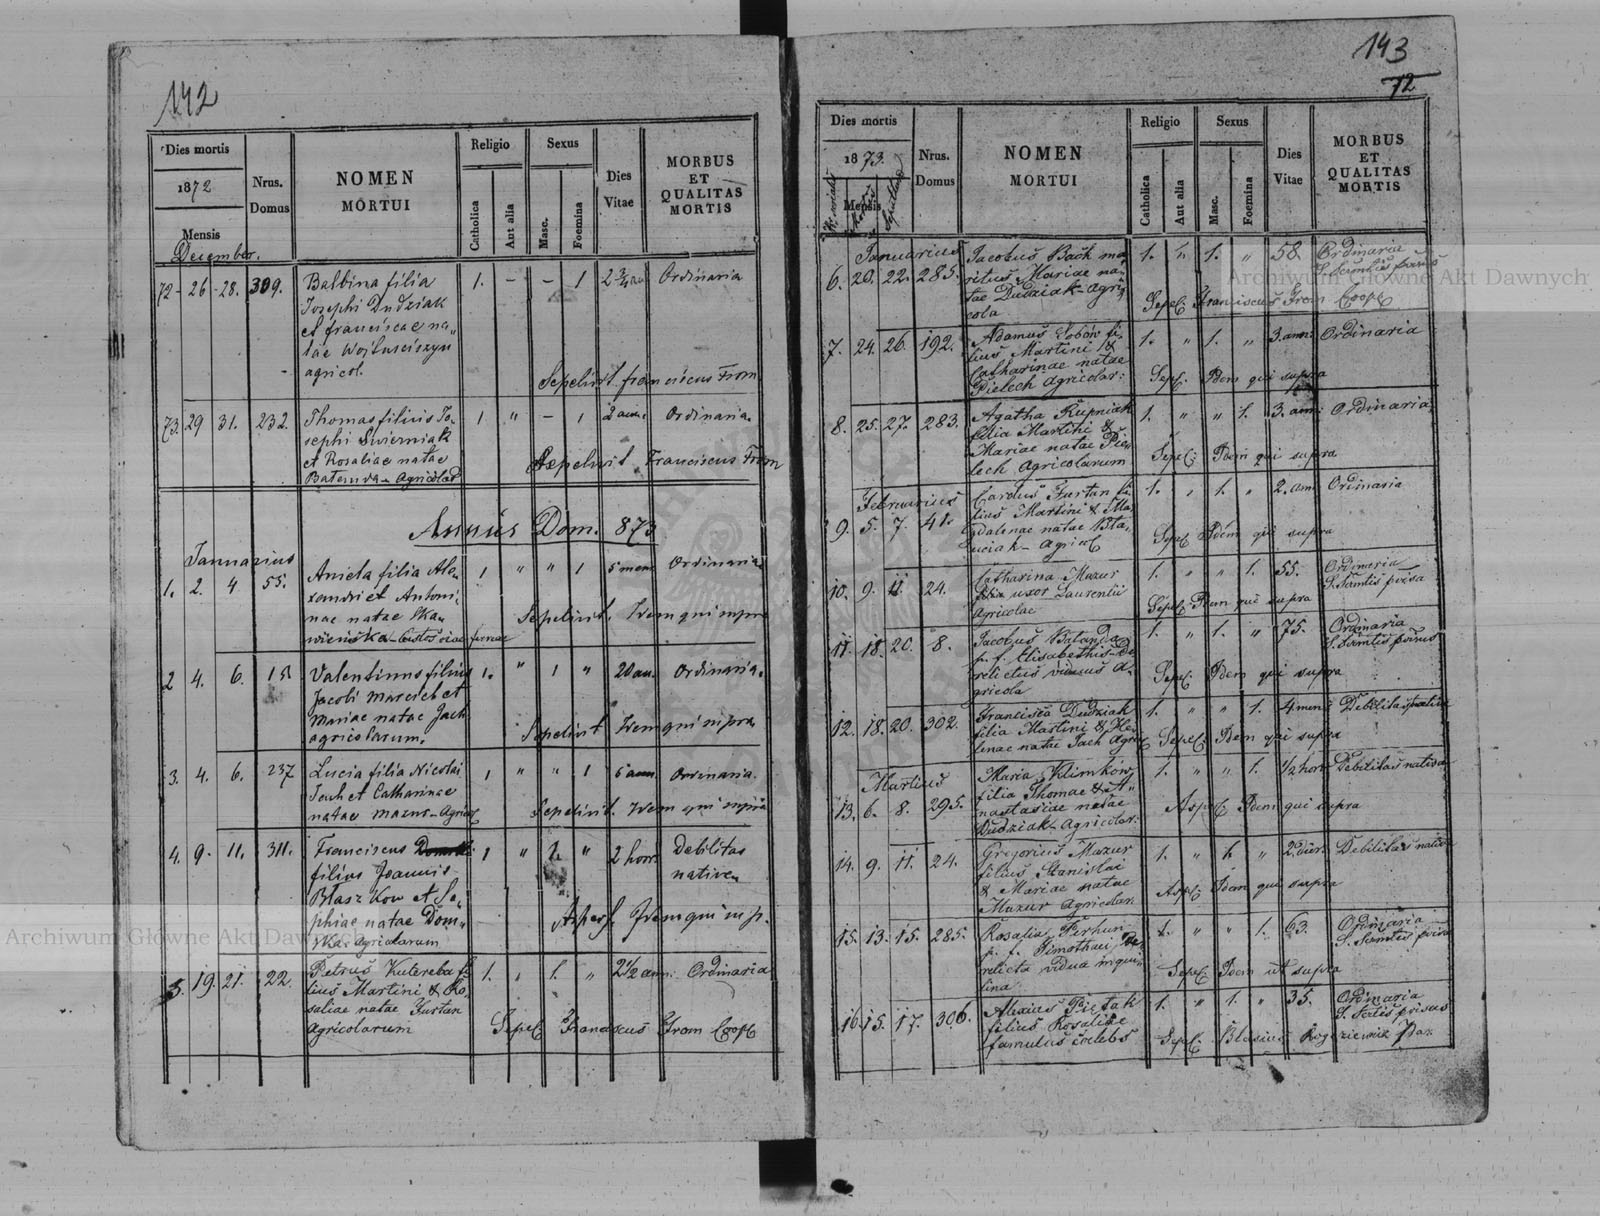 142
Dies mortis
1872
Mensis
Nrus.
Domus
NOMEN
MORTUI
Religio
Catholica
Aut alia
Sexus
Masc.
Foemina
Dies
Vitae
MORBUS
ET
QUALITAS
MORTIS
December.
72 - 26 - 28. 309. Balbina filia 1. - - 1 2 3/4 an Ordinaria
Josephi Dudziak
et franciscae na„
tae
agricol.
Sepelivit franciscus From
73. 29 31. 232. Thomas filius Jo- 1 " - 1 2 Ordinaria
sephi Swierniak
et Rosaliae natae
Agricolar
Sepelivit Franciscus From
Annus Dom. 873
Januarius
1. 2. 4 55. Aniela filia Ale- 1 " " 1 5 mens Ordinaria
xandri et Antoni-
nae natae
Sepelivit. Idem qui supra
2 4. 6. 151 Valentinus filius 1. " 1 " 20 an. Ordinaria.
Jacobi et
Mariae natae Jach
agricolarum.
Sepelivit Idem qui supra
3. 4. 6. 237 Lucia filia Nicolai 1 " " 1 5 ann. Ordinaria.
Jach et Catharinae
natae Mazur - Agricol
Sepelivit. Idem qui supra
4. 9. 11. 311. Franciscus 1 " 1. " 2 hor. Debilitas
filius Joannis nativa
Błaszkow et So-
phiae natae Dom„
ska. Agricolarum
Aspers. Idem qui sup.
5. 19. 21. 22. Petrus Kutereba fi 1. , 1. " 2 1/2 ann: Ordinaria
lius Martini & Ro-
saliae natae Furtan
Agricolarum
Sepel Franciscus From Coop
143
72
Dies mortis
1873.
Mensis
Nrus.
Domus
NOMEN
MORTUI
Religio
Catholica
Aut alia
Sexus
Masc.
Foemina
Dies
Vitae
MORBUS
ET
QUALITAS
MORTIS
Januarius
6. 20. 22. 285. Jacobus Bach ma- 1. " 1. " 58. Ordinaria
ritus Mariae na-
tae Dudziak - Agri-
cola
Sepel: Franciscus From Coop
7. 24. 26. 192. Adamus fi- 1. " 1. " 3. ann: Ordinaria
lius Martini &
Catharinae natae
Pielech Agricolar:
Sepel: Idem qui supra
8. 25. 27. 283. Agatha Rupniak 1. " " 1. 3. ann: Ordinaria
filia Martini &
Mariae natae Pie-
lech Agricolarum
Sepel: Idem qui supra
Februarius
9. 5. 7. 41. Carolus Furtan fi- 1. , 1. " 2. ann Ordinaria
lius Martini & Ma-
gdalenae natae
Agricol
Sepel Idem qui supra
10. 9. 11. 24. Catharina Mazur 1. " " 1. 55. Ordinaria
uxor Laurentii
Agricolae
Sepel Idem qui supra
11. 18. 20. 8. Jacobus 1. " 1. " 75. Ordinaria
p. f. Elisabethis De
relictus viduus A-
gricola
Sepel: Idem qui supra
12. 18. 20. 302. Francisca Dudziak 1. " " 1. 4 mens Debilitas nativa
filia Martini & He-
lenae natae Jach Agricol
Sepel: Idem qui supra
Martius
13. 6. 8. 295. Maria Klimkow 1. " " 1. 1/2 hor: Debilitas nativa
filia Thomae & A„
nastasiae natae
Dudziak - Agricolar:
Aspel Idem qui supra
14. 9. 11. 24. Gregorius Mazur 1. " 1. " 2. dier: Debilitas nativa
filius Stanislai
& Mariae natae
Mazur Agricolar.
Aspel Idem qui supra
15. 13. 15. 285. Rosalia Perhun 1. " " 1. 63. Ordinaria
p. f. Timothaei De-
relicta vidua inqui-
lina
Sepel Idem ut supra
16. 15. 17. 306. Alexius Pietak 1. " 1. " 35. Ordinaria
filius Rosaliae
famulus coelebs
Sepel: Blasius
Archiwum Główne Akt Dawnych
Archiwum Główne Akt Dawnych